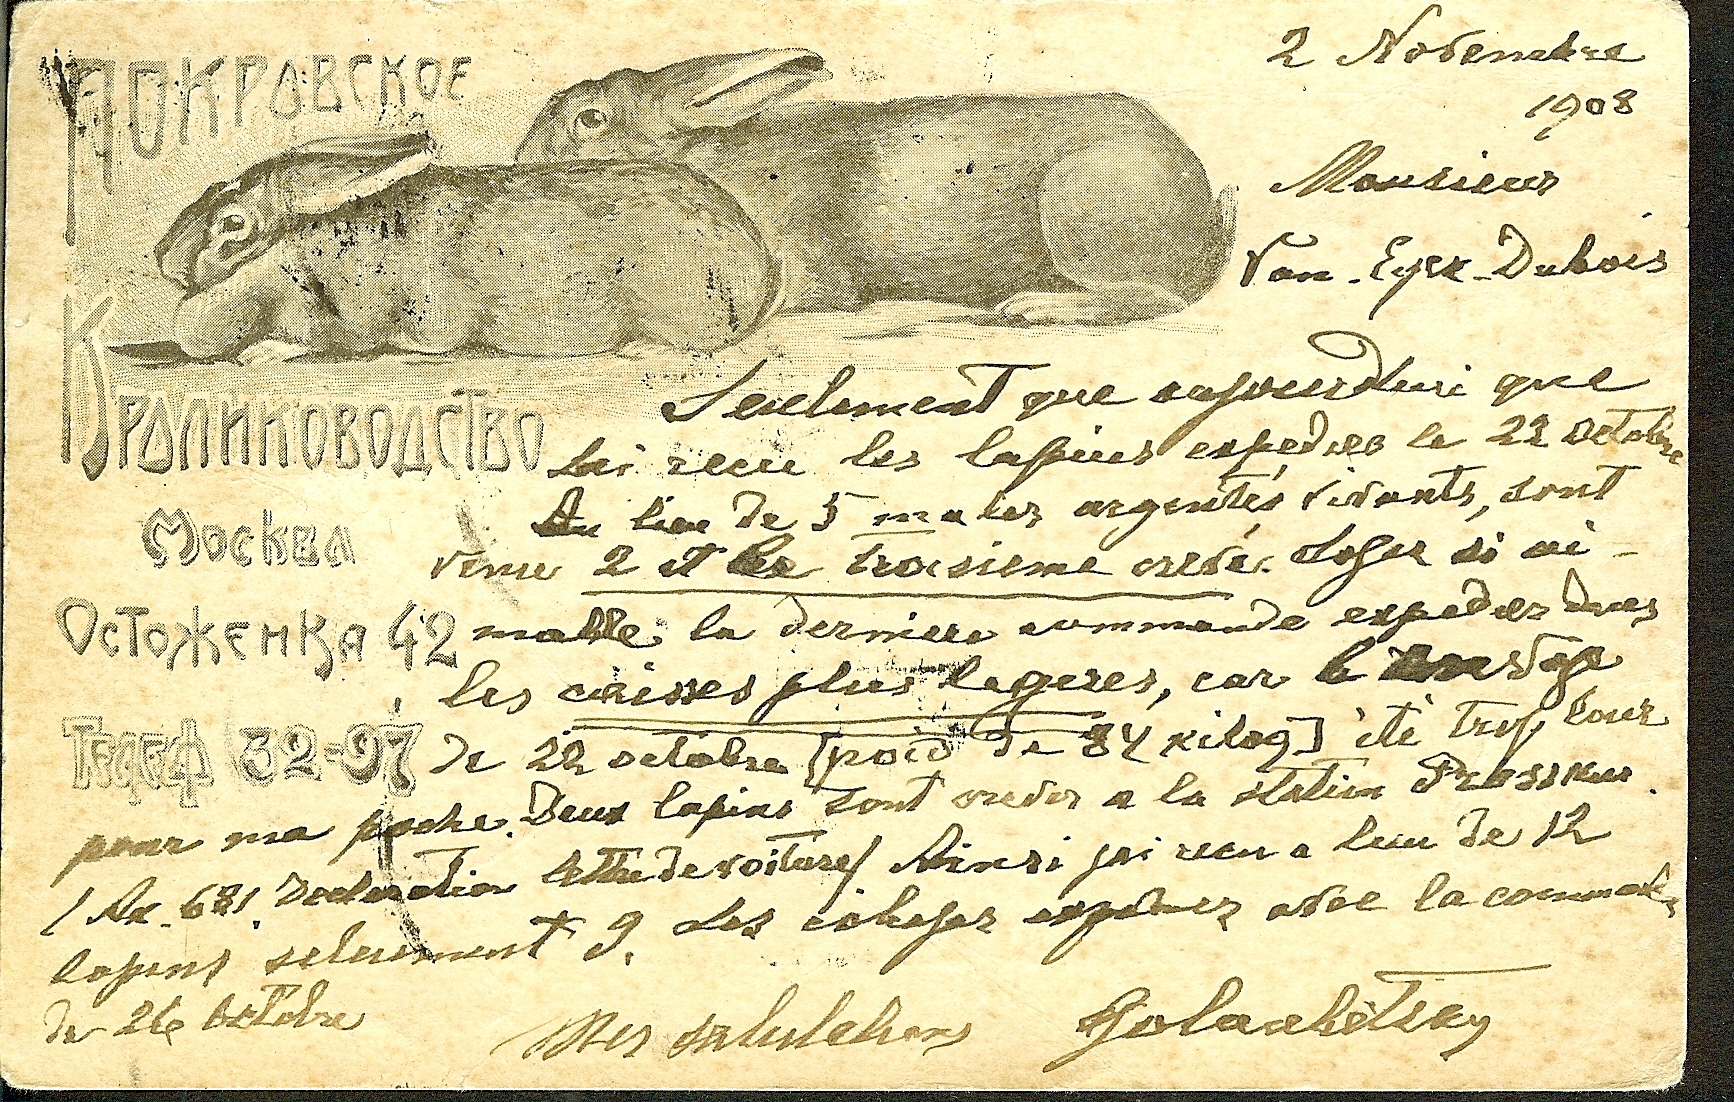 Покровское
Кролиководство
Москва
Остоженка 42
Телеф 32-97
2 Novembre
1908
Monsieur
Van-Eyck-Dubois
Seulement que aujourdhui que
jai recu les lapins expedies le 22 octobre
Au lieu de 5 males argentés vivants, sont
venu 2 et le troisieme crevé. Soyez si ai-
mable la derniere commande expedier dans
les caisses plus legeres, car le
de 22 octobre [poid de 84 kilog] été trop lour
pour ma poche. Deux lapins sont crever a la station
/ No. 681 Declaration lettre de voiture/ Ainsi jai recu a lieu de 12
lapins seleument + 9. Les expedier avec la commande
de 26 octobre
Mes salutations Golaubetsky